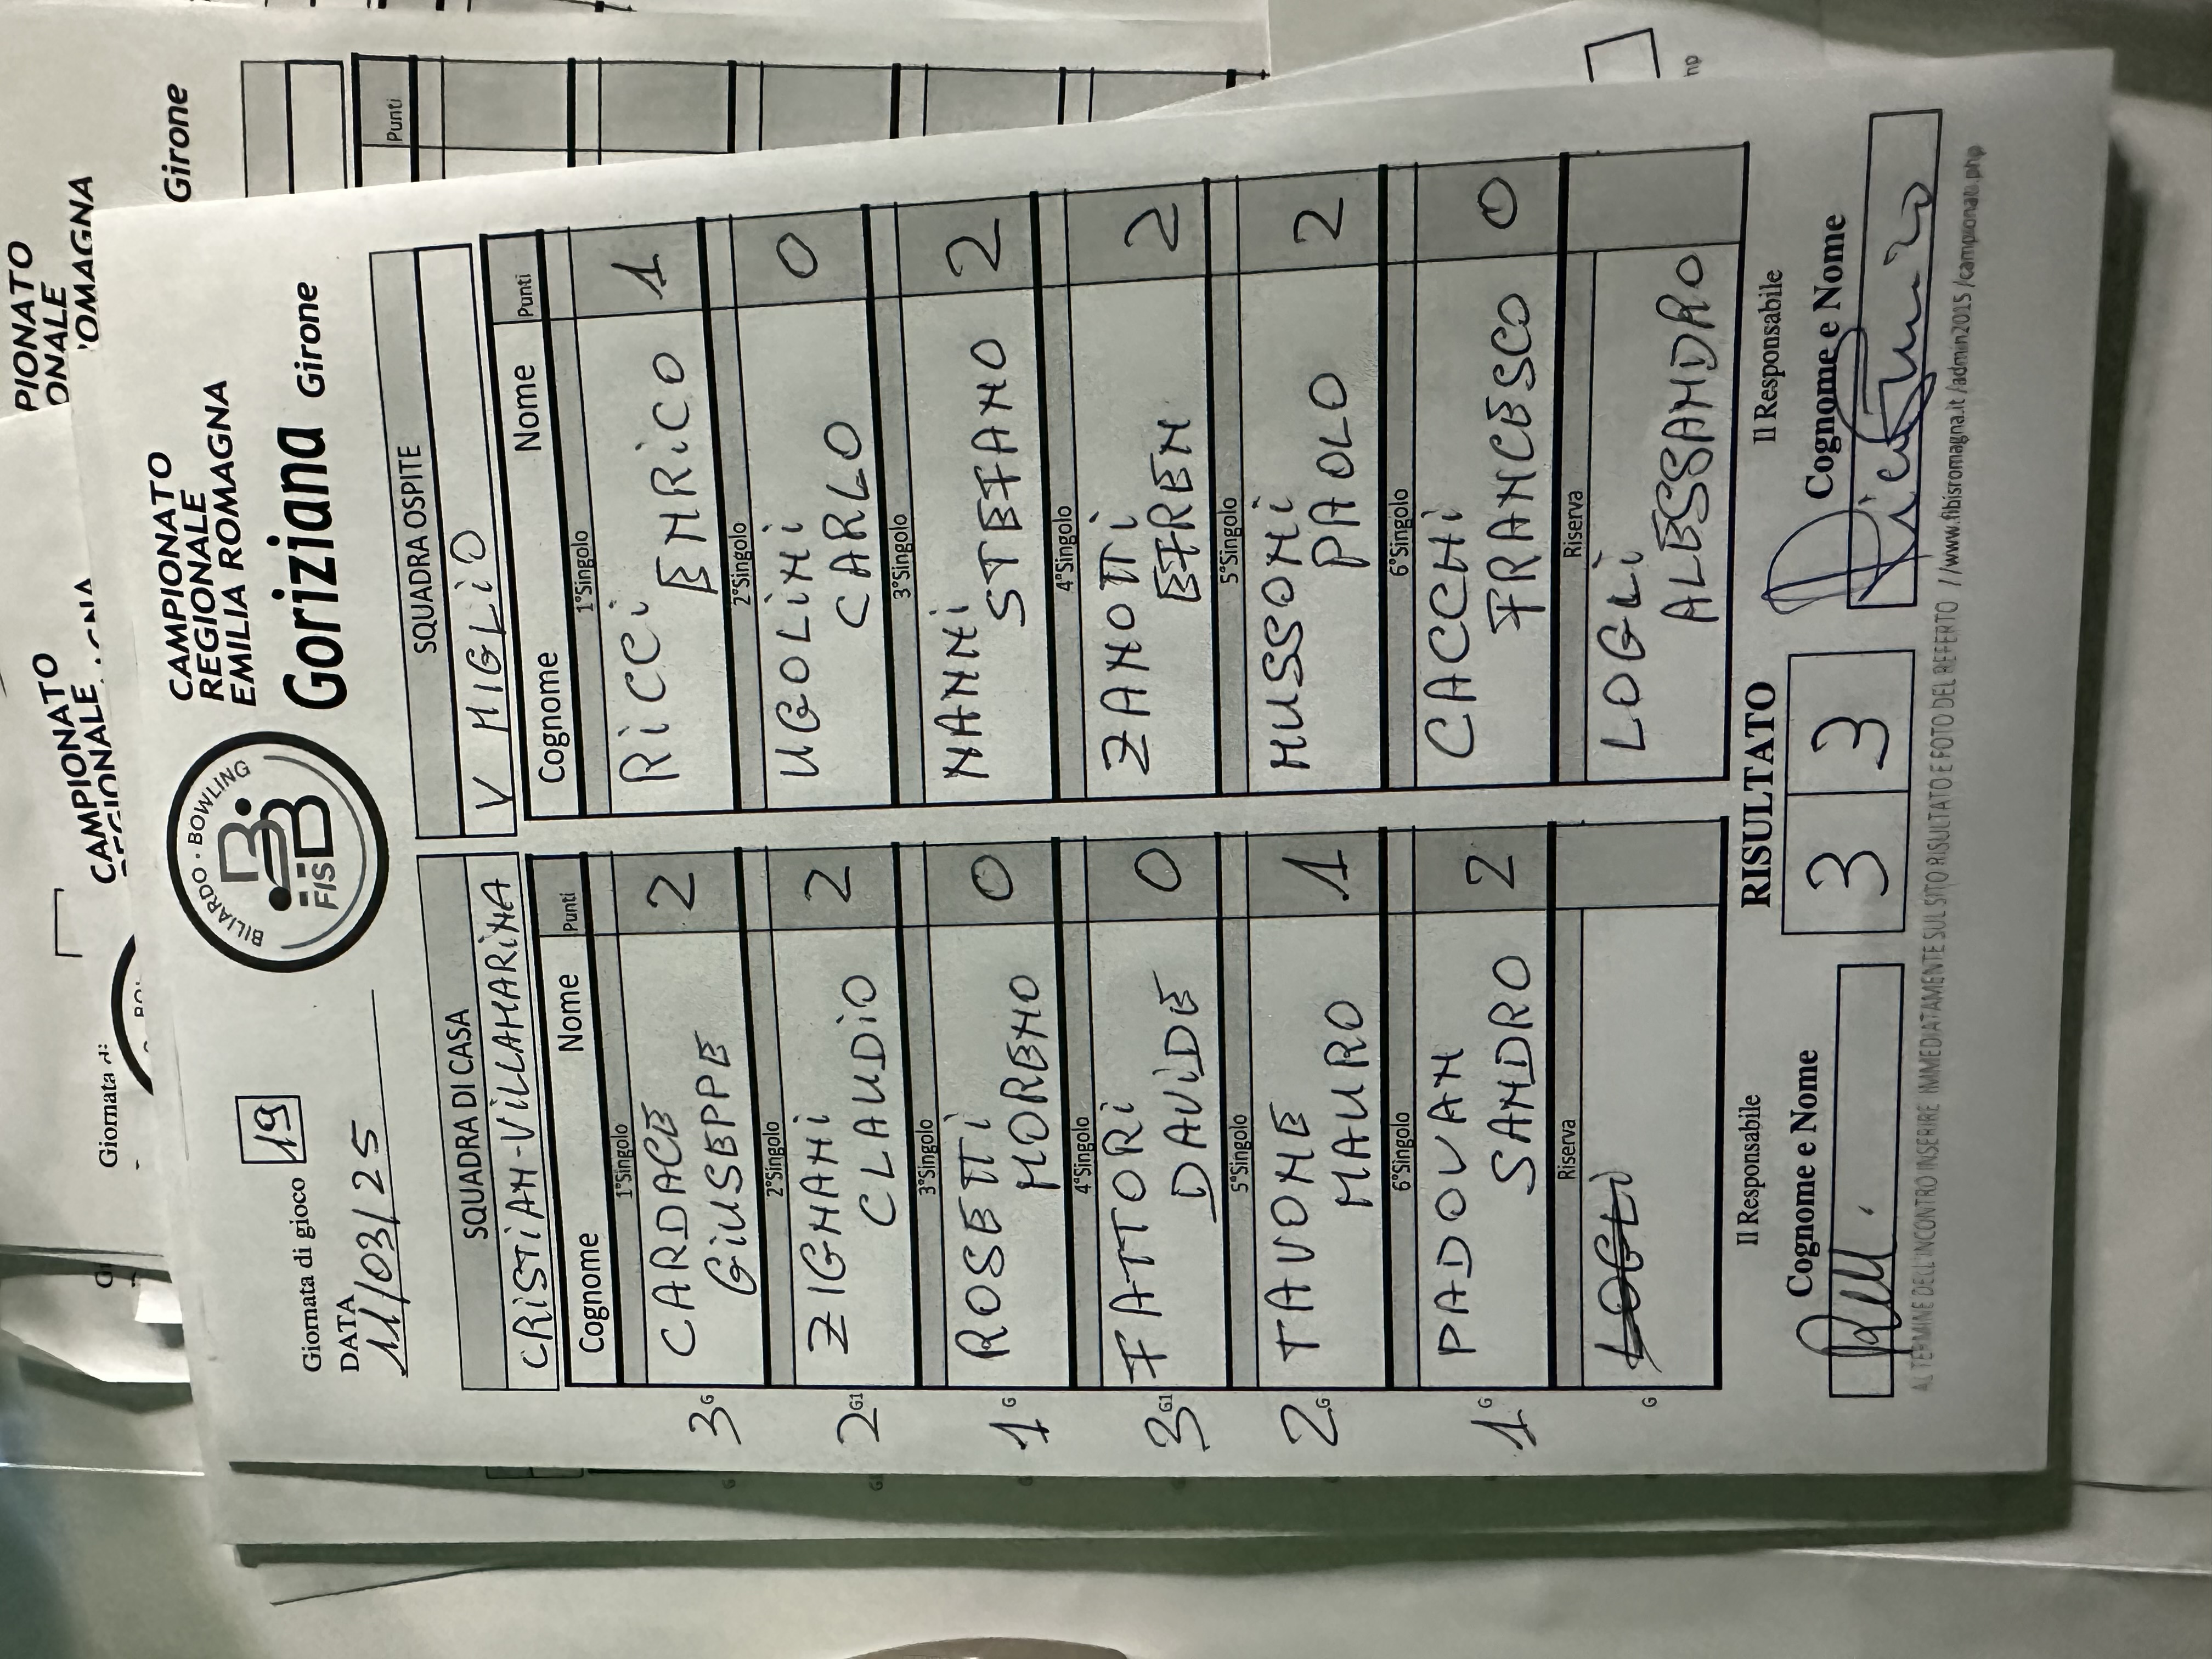 Giornata di gioco 19
DATA
11/03/25
BILIARDO · BOWLING
FISBB
CAMPIONATO
REGIONALE
EMILIA ROMAGNA
Goriziana Girone
SQUADRA DI CASA
CRiSTiAN-ViLLAMARiNA
Cognome Nome Punti
1°Singolo
3 G CARDACE GiUSEPPE 2
2°Singolo
2 G1 ZIGNANi CLAUDiO 2
3°Singolo
1 G ROSETTi MORENO 0
4°Singolo
3 G1 FATTORi DAViDE 0
5°Singolo
2 G TAVONE MAURO 1
6°Singolo
1 G PADOVAN SANDRO 2
Riserva
G LOGLi
SQUADRA OSPITE
V MIGLiO
Cognome Nome Punti
1°Singolo
RiCCi ENRiCO 1
2°Singolo
UGOLiNi CARLO 0
3°Singolo
NANNi STEFANO 2
4°Singolo
ZANOTTi EFREN 2
5°Singolo
MUSSONi PAOLO 2
6°Singolo
CACCHi FRANCESCO 0
Riserva
LOGLi ALESSANDRO
Il Responsabile
Cognome e Nome
RISULTATO
3 3
Il Responsabile
Cognome e Nome
AL TERMINE DELL'INCONTRO INSERIRE IMMEDIATAMENTE SUL SITO RISULTATO E FOTO DEL REFERTO //www.fibisromagna.it/admin2015/campionato.php
Giornata di
CAMPIONATO
PIONATO
ONALE
OMAGNA
Girone
Punti